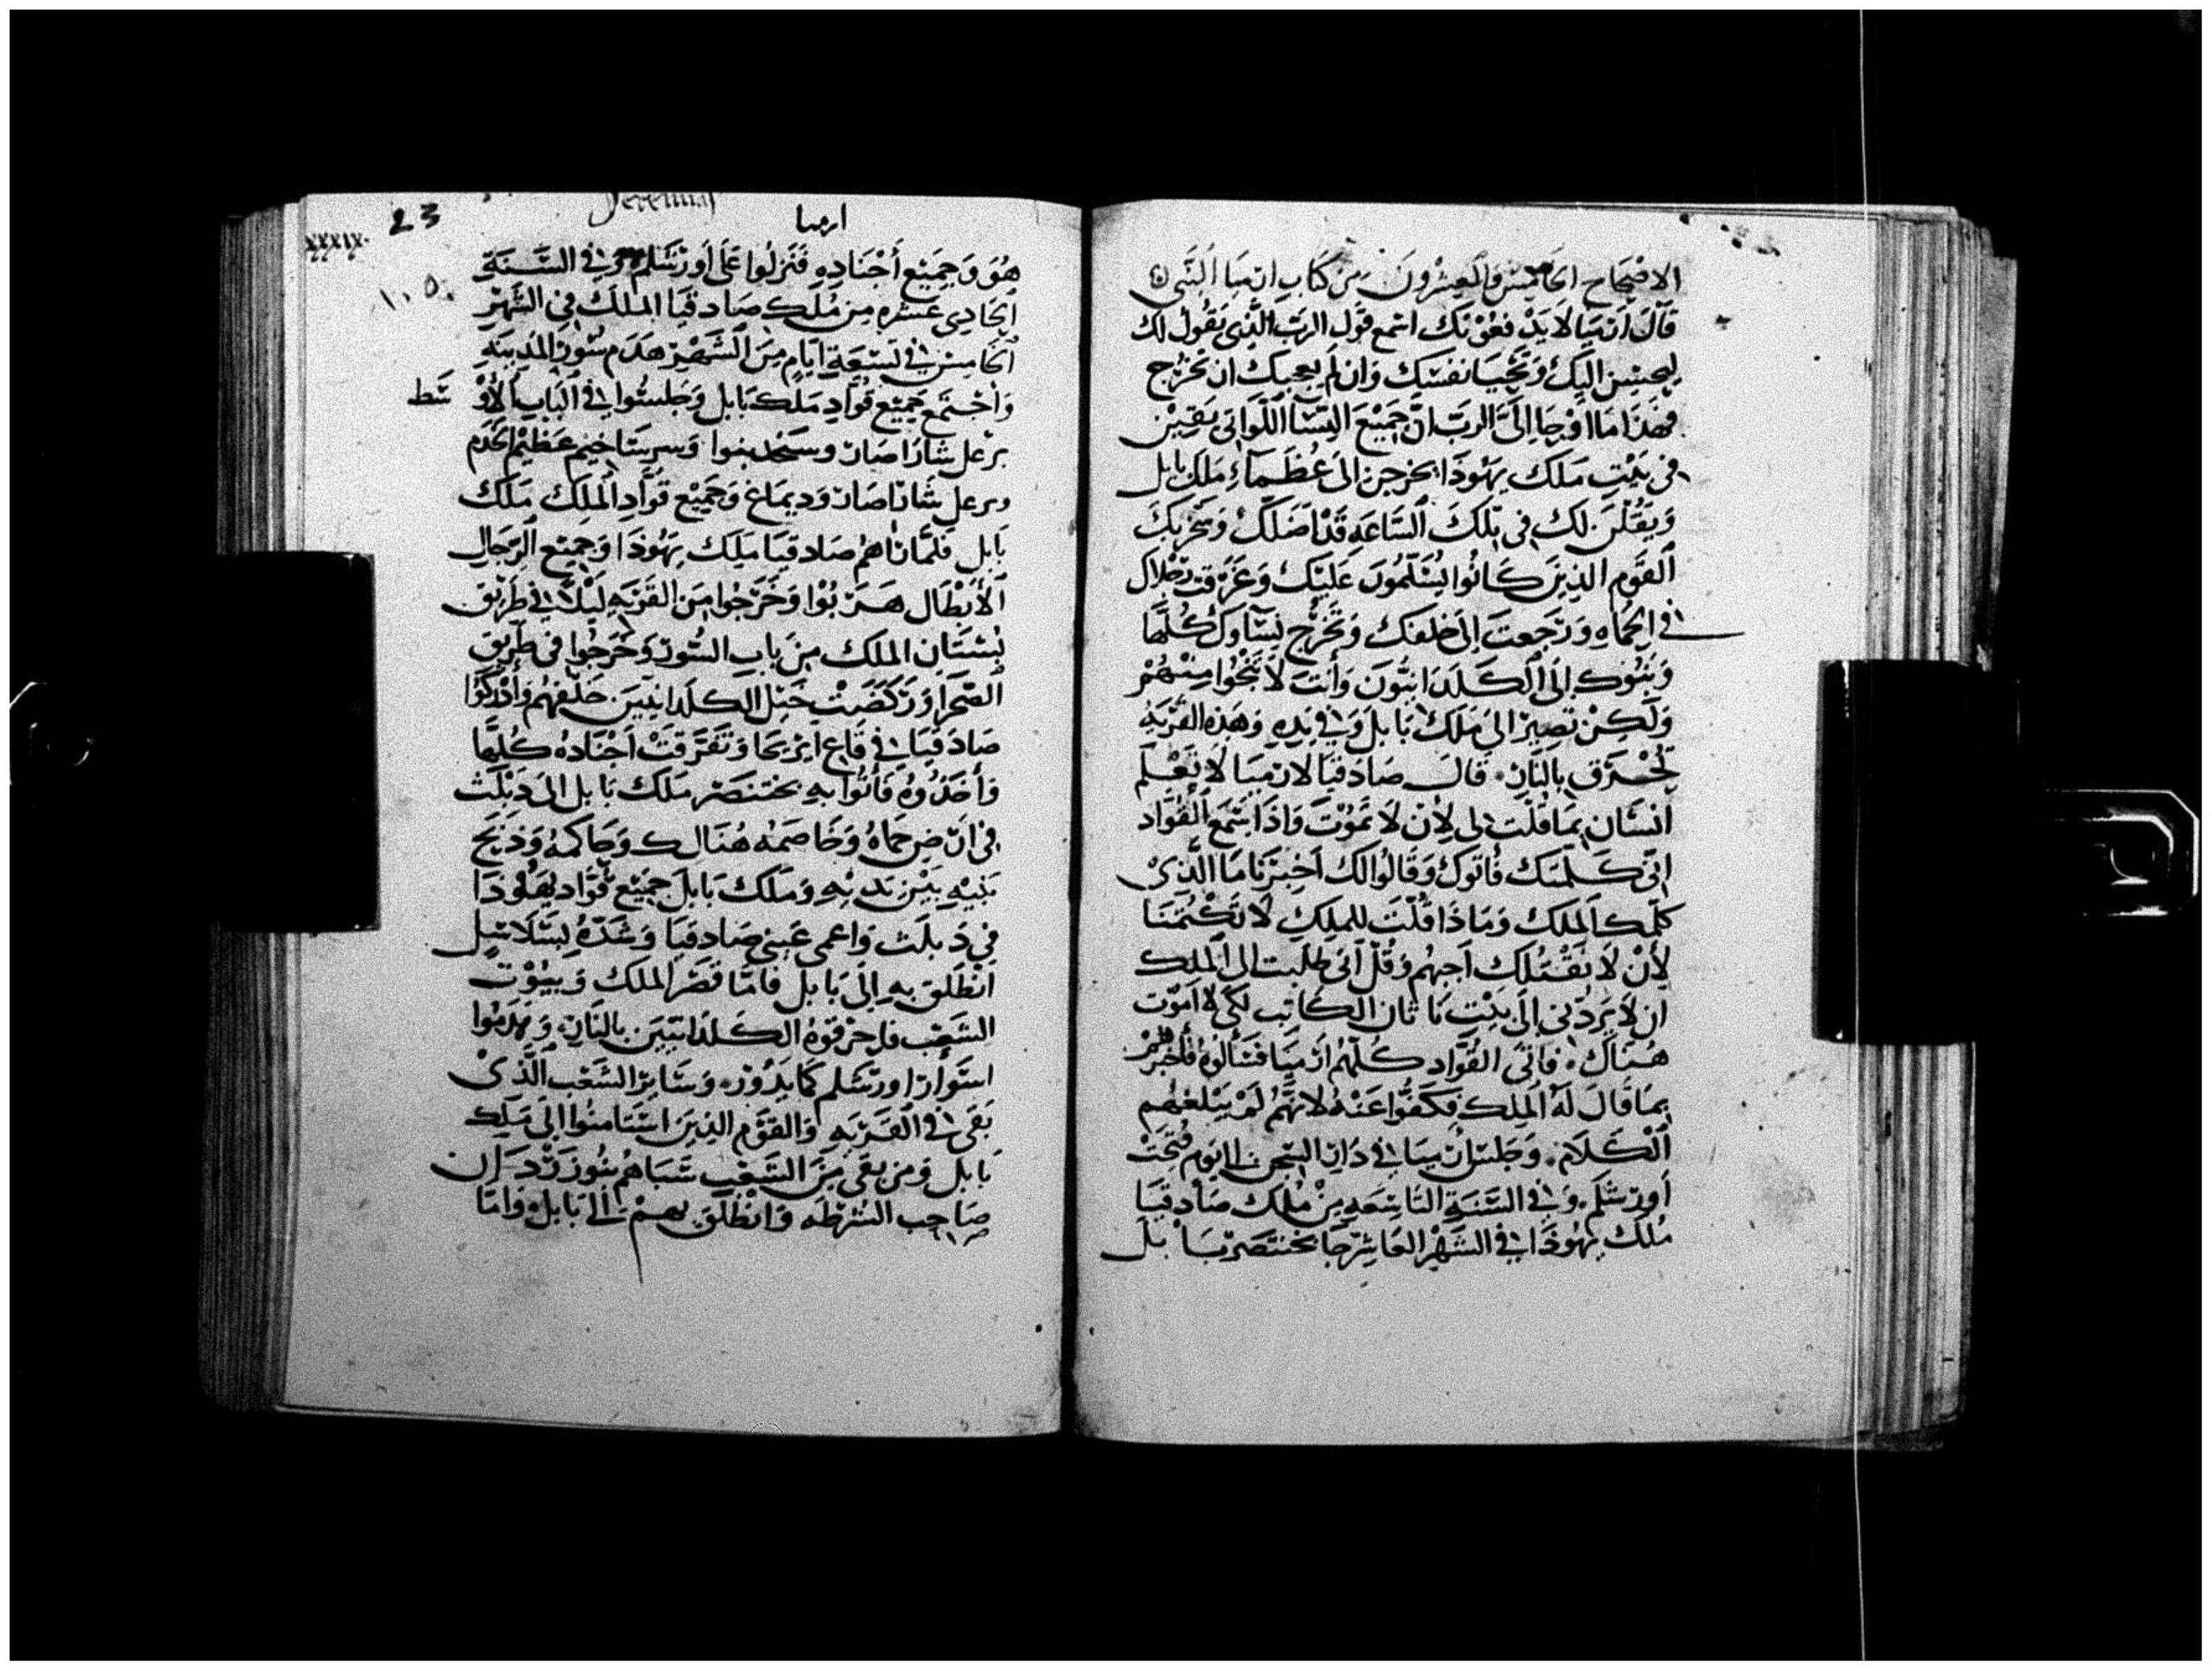 الاصْحَاح الخامِسْ وَالعِشرُونَ مِن كتابِ ارميَا النَبّى
قَالَ أرْميَا لا يَدْفعُوْنَك اسْمع قَول الرَبّ الَّذِى يَقُولُ لك
ليحسِن اليَك وَتحْيَا نفسَك وَان لم يعجبك ان تخرُج
فهَذَا مَا اوْحا اِلَىَّ الربّ انّ جَميْعَ النِسَآ اللّوَاتى بَقِين
فى بَيْتِ مَلك يهُوذَا يخرجن الىَ عُظمَآءِ مَلك بَابل
وَيَقُلْنَ لك فى تِلكَ السَّاعَه قَد اضَلكْ وَ
القَوم الذِينَ كَانُوا يُسَلّمُونَ عَليْك وَغرقَت رجْلاك
فى الحمَاه وَرَجعتَ اِلَى خلفك وَتخرُج نِسَآوك كُلّهَا
وَبَنُوك اِلى الكَلدَانيُّونَ وَأنتَ لا تَنْجُوا مِنْهُمْ
وَلَكِنْ تَصِيرُ اليَ مَلك بَابل وَفى يَدِهِ وَهَذِه القَريَهُ
تُحْتَرق بالنَار قالَ صَادَقيَا لارميَا لاَ يَعْلم
انسَان بمَا قُلتَ لى لِأن لاَ تمُوْتَ وَاذَا سَمعَ القُوّاد
انّى كَلّمتك فأتوكَ وَقَالُوا لكَ اخبرنَا مَا الّذِىْ
كلّمك المَلك وَمَاذَا قُلْتَ للملِكِ لاَ تَكْتُمنَا
لِأنْ لاَ نَقْتُلَك اجبهُم وَقُلْ اَنى طَلبت الى المَلِك
ان لاَ يَردّنى إلىَ بَيْتِ نَاثان الكَاتِب لكى لا اموْت
هُنَاكَ فاتَى القُوّاد كُلّهُم ارْميَا فَسَألُوهُ فأخبَرهُمْ
بِمَا قَالَ لَهُ المَلِك فكفُّوا عَنْهُ لانهَّمُ لَمْ يَبْلغهم
الْكَلاَم وَجَلسَ أرميَا فى دَار السّجن الى اليَوْم فُتِحَتْ
اورشَلم وَفى السَّنَةِ التَاسِعَه مِنْ مُلك صَادقيَا
مَلك يهُوذَا فى الشَهْرِ العَاشِر جَا بختنصَر مَلك بَابل
Jeremiah
ارميا
23
XXXIX
هُوَ وَجميْع أجْنَادِهِ فَنَزلُوا عَلىَ أورشَلم وَفى السَّنَةِ
الحَادِى عَشره مِن مُلك صَادقيَا المَلك فى الشَهْرِ
الخامِسْ فى تسْعَةِ ايَام مِنَ الشَهْر هدَم سُور المدِينَهِ
وَاجْتَمع جميْع قُوادِ مَلك بَابل وَجَلسُوا فى البَاب الأوْ سَط
نرعل شارَاصَار وسَمجد ينوا وَسرستَا خيم عَظيْم الخدَم
ونرعل شارَاصَار وَديماغ وَجَميْع قُوّادِ المَلِك مَلك
بَابل فلمَّا رَاهُم صَادقيَا مَلِك يهُوذَا وَجميْع الرّجَال
الأبْطَال هَربُوْا وَخَرَجُوا مِن القَرْيَهِ لَيْلاً فى طَرِيْق
بُسْتَانِ المَلك مِن بَابِ السُّور وَخَرجُوا فى طَرِيْق
الصّحرَا وَرَكَضَتْ خَيْل الكَلدَانيينَ خلفهُم وَأدْركُوا
صَادَقيَا فى قَاع ايريحَا وَتَفَرقَتْ اجْنَادهُ كُلهَّا
وَأخَذُوهُ فَأتُوا بهِ بختنصَر مَلك بَابل الىَ دَبْلَث
فى ارَض حَمَاهُ وَخَاصَمهُ هُنَالِك وَحَاكمهُ وَذبَح
بَنِيْهِ بَيْنَ يَدَيْهِ وَمَلك بَابل جميْع قُوّاد يَهُوذَا
فى دَبلَث وَاعمى عَينى صَادقيَا وَشَدّهُ بِسَلاسِل
انْطَلَقَ بهِ إلَى بَابل فامّا قَصَر المَلك وَبيُوْت
الشَعْب فاحْرَقوهُ الكَلدَانيينَ بالنَارِ وَهَدَمُوا
اسَوَار اورشلم كمَا يَدُوْر وَسَاير الشَعْب الَّذِىْ
بَقى فى القَريَهِ وَالقَوْم الذِينَ استَامنُوا الىَ مَلِك
بَابل وَمن بَقى مِنَ الشَعْب سَبَاهُم بنُوزرْدَان
صَاحِب الشرطَه وَانْطَلَق بهمْ الى بَابل وَامّا